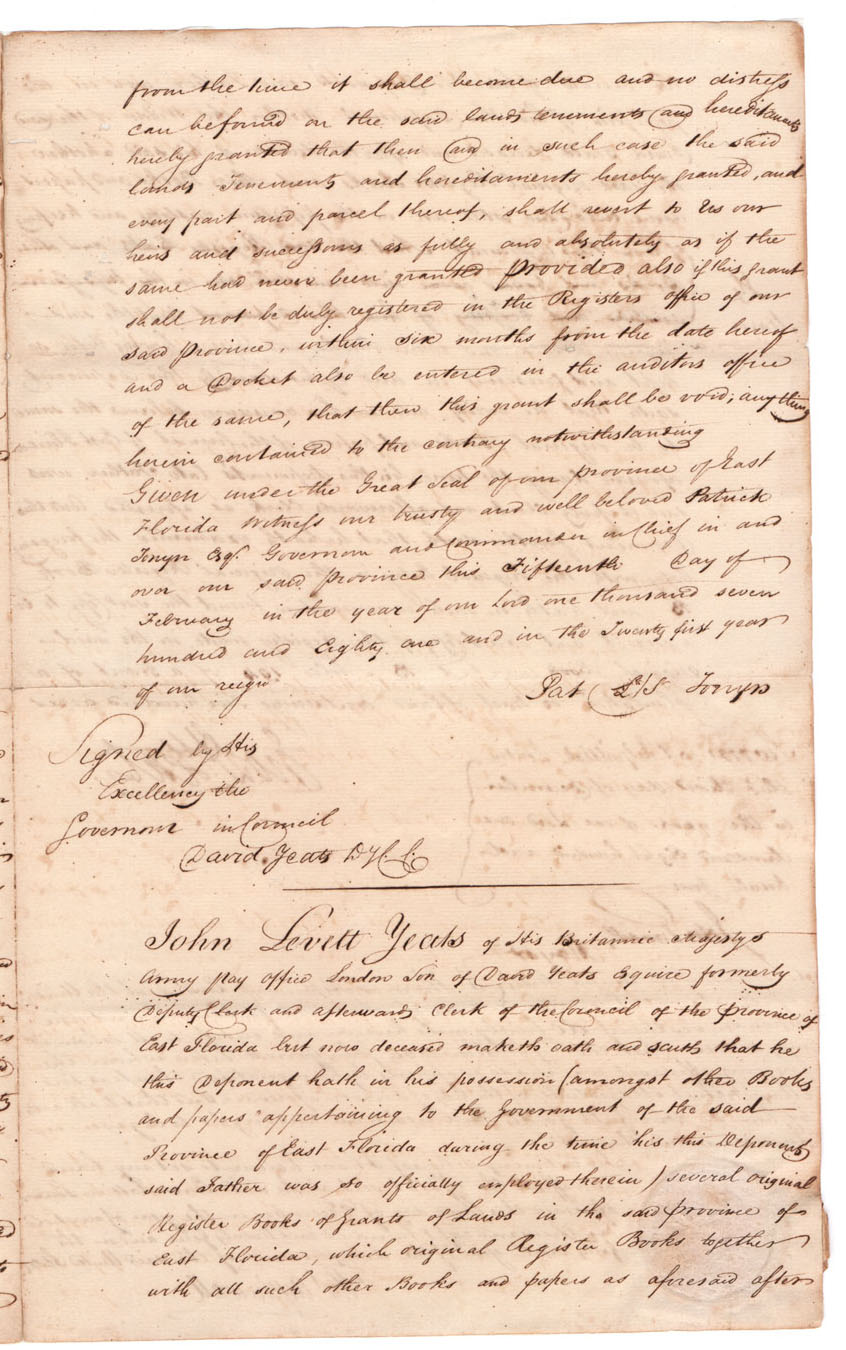 from the time it shall become due and no distress
can be found on the said lands tenements and hereditaments
hereby granted that then and in such case the said
lands Tenements and hereditaments hereby granted, and
every part and parcel thereof, shall revert to Us our
heirs and successours as fully and absolutely as if the
same had never been granted provided also if this grant
shall not be duly registered in the Registers office of our
said province, within six months from the date hereof
and a Docket also be entered in the auditors office
of the same, that then this grant shall be void, any thing
herein contained to the contrary notwithstanding
Given under the Great Seal of our province of East
Florida Witness our trusty and well beloved Patrick
Tonyn Esqr. Governour and Commander in Chief in and
over our said province this Fifteenth Day of
February in the year of our Lord one thousand seven
hundred and Eighty one and in the Twenty first year
of our reign
Pat L/S Tonyn
Signed by His
Excellency the
Governour in Council
David Yeats D.C.C.
John Levett Yeats of His Britannic Majestys
Army pay office London Son of David Yeats Esquire formerly
Deputy Clerk and afterwards Clerk of the Council of the province of
East Florida but now deceased maketh oath and saith that he
this Deponent hath in his possession (amongst other Books
and papers appertaining to the Government of the said
Province of East Florida during the time his this Deponents
said Father was so officially employed therein) several original
Register Books of Grants of Lands in the said province of
East Florida, which original Register Books together
with all such other Books and papers as aforesaid after